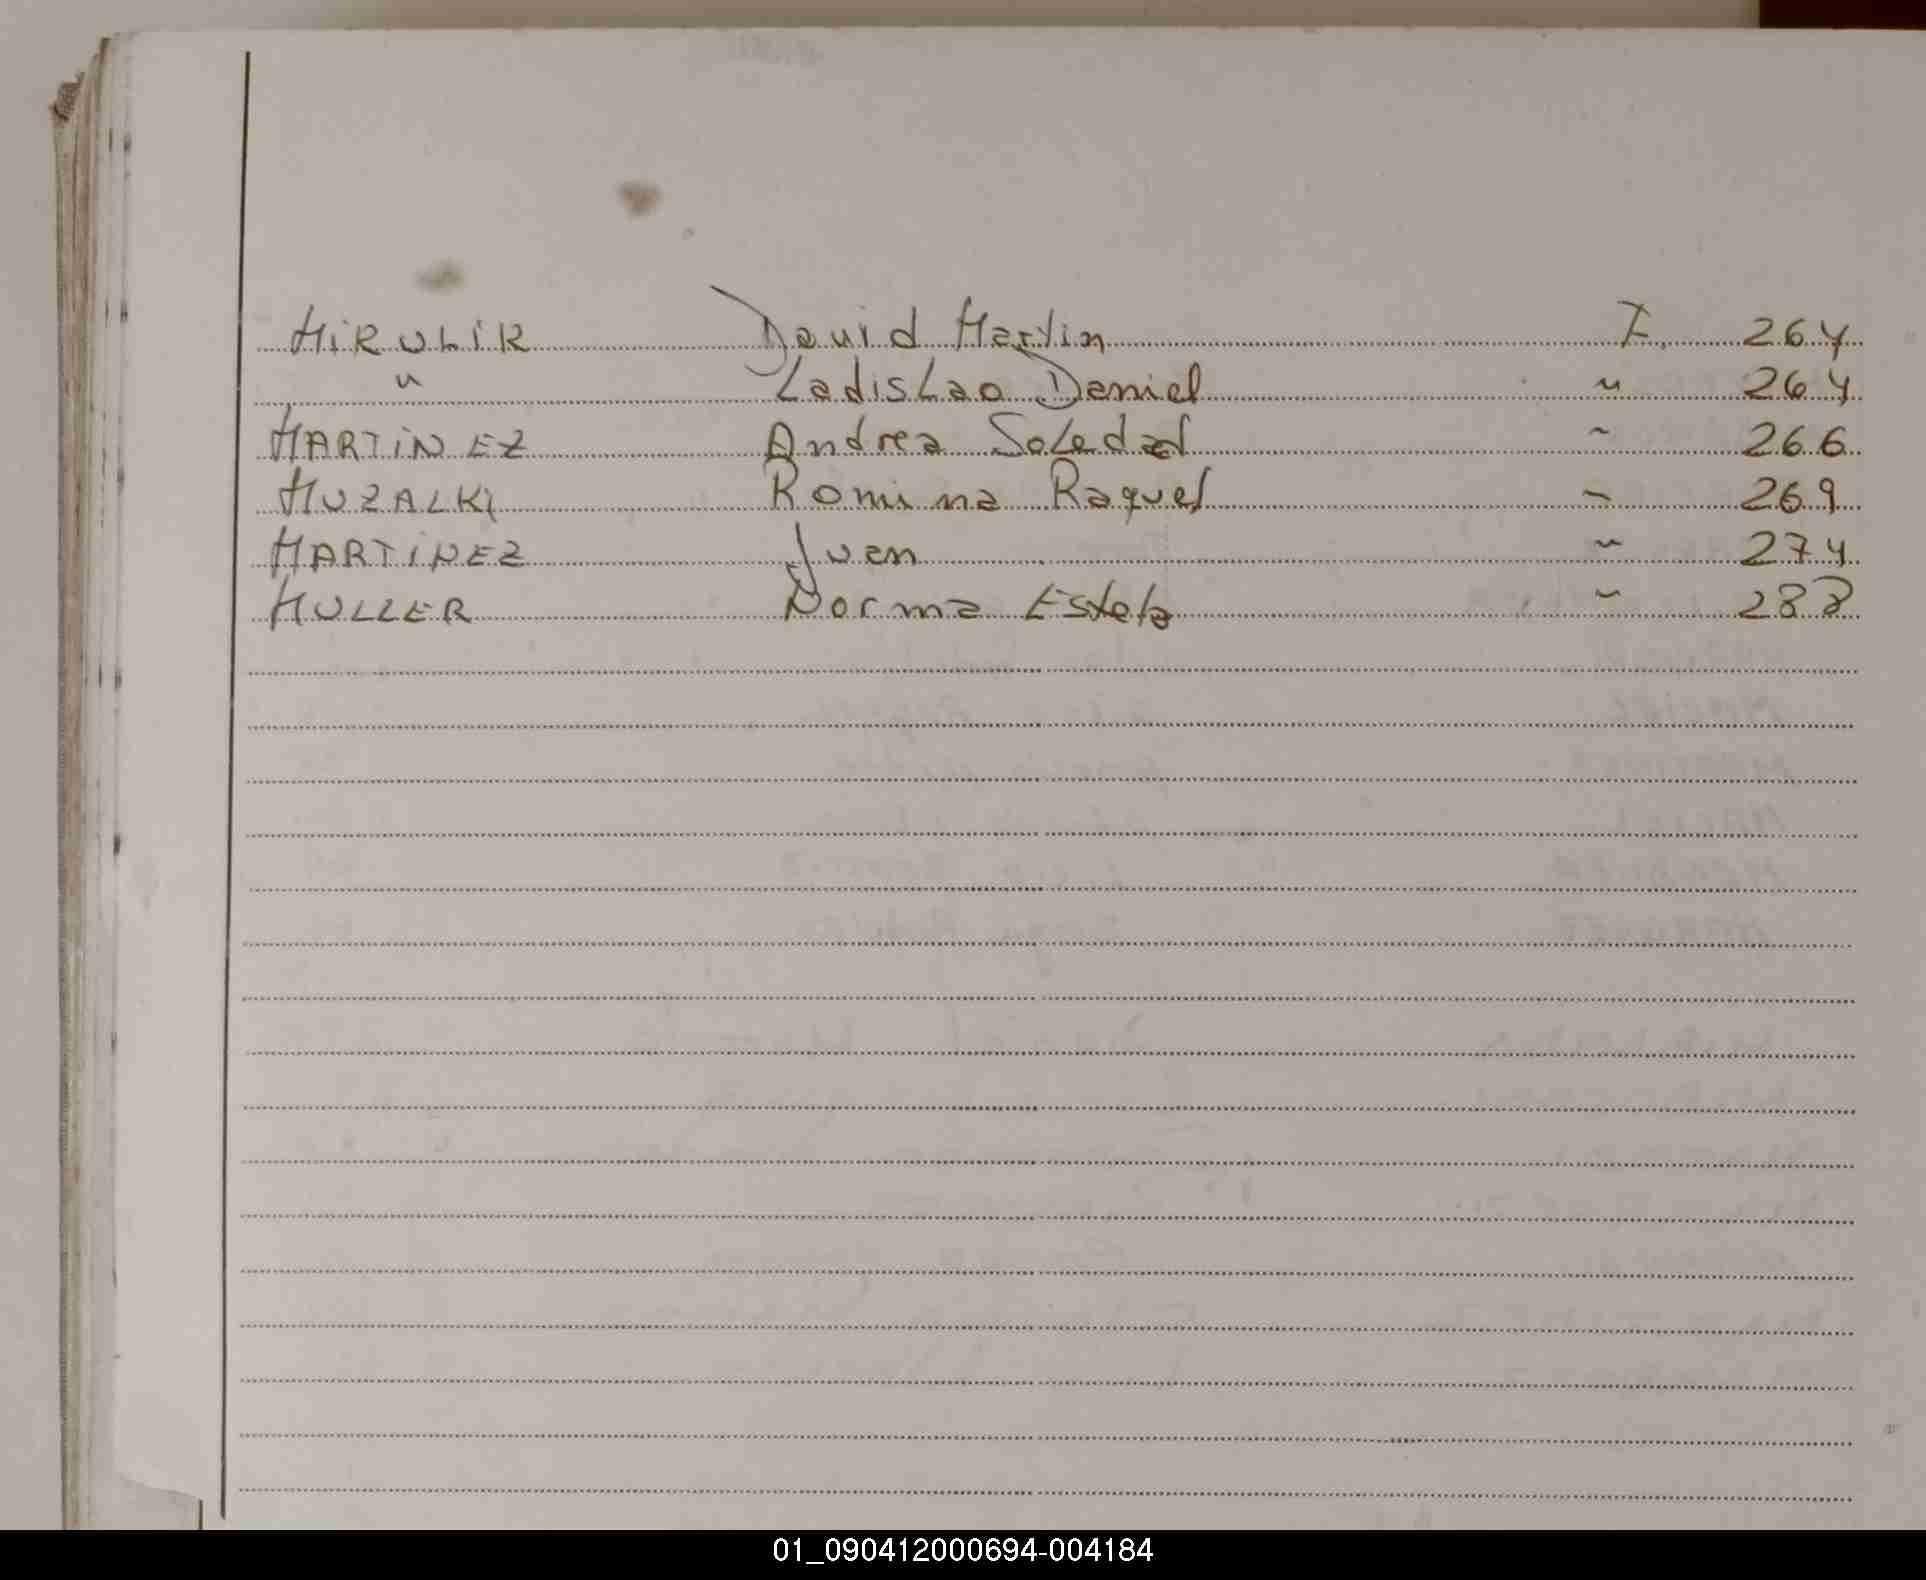 MiRULiK David Martin F. 264
" Ladislao Daniel " 264
MARTiNEZ Andrea Soledad " 266
MUZALKI Romina Raquel " 269
MARTiNEZ Juan " 274
MULLER Norma Estela " 288
01_090412000694-004184